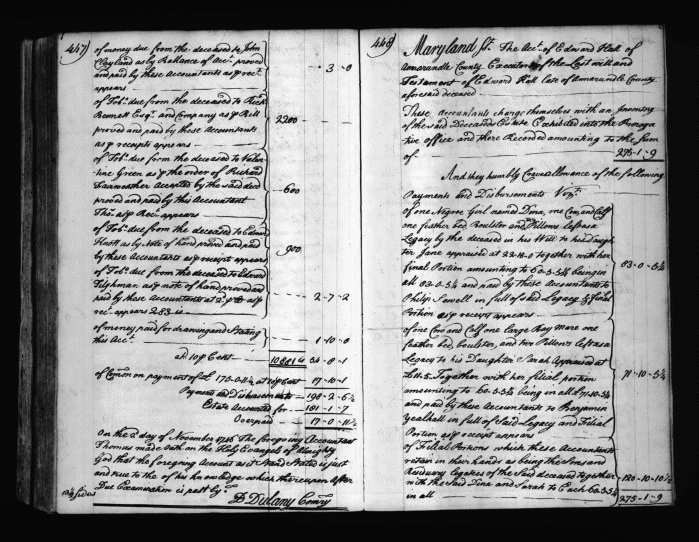 447
of money due from the deceased to John
Clayland as by Ballance of Acct. proved
and paid by these Accountants as ꝑ rect.
appears — - 3 - 0
of Tobo. due from the deceased to Richd.
Bennett Esqr. and Company as ꝑ Bill
proved and paid by these Accountants
as ꝑ receipts appears — 2200
of Tobo. due from the deceased to Valen
tine Green as ꝑ the order of Richard
Fairweather Accepted by the said decd.
proved and paid by this Accountant
Thos. as ꝑ Rec. appears — 600
of Tobo. due from the deceased to Edward
Knott as by Note of hand proved and paid
by these Accountants as ꝑ receipt appears 900
of Tobo. due from the deceased to Edward
Tilghman as ꝑ note of hand proved and
paid by these Accountants at as ꝑ
rec. appears 283 is — 2 - 7 - 2
of money paid for drawing and Stating
this Acct. — 1 - 10 - 0
at 10 ꝑ Cent — 10881 is 54 - 8 - 1
of Comon. on payment of £ at 10 ꝑ Cent 17 - 10 - 1
Payments and Disbursements — 198 - 2 - 6½
Estate Accounted for — 181 - 1 - 7
Overpaid — 17 - 0 - 11½
On the 2 day of November 1736 The foregoing Accountant
Thomas made Oath on the Holy Evangels of Almighty
God that the foregoing Account as it Stands Stated is just
and true to the best of his knowledge which thereupon after
Due Examination is past by
D Dulany Comry.
Sides
448
Maryland Ss. The Acct. of Edward Hall of
Annarundle County Executor of the Last will and
Testament of Edward Hall late of Annarundle County
aforesaid deceased —
These Accountants charge themselves with an Inventory
of the said Deceaseds Estate Exhibited into the Preroga
tive office and there Recorded amounting to the Sum
of — 275 - 1 - 9
And they humbly Crave allowance of the following
Payments and Disbursements Vizt.
of one Negroe Girl named Dina, one Cow and Calf
one feather bed, Boulster and Pillows left as a
Legacy by the deceased in his Will to his Daugh
ter Jane appraised at 22-18-0 together with her
final Portion amounting to 60-3-5¼ being in
all 83-0-5¼ and paid by these Accountants to
Philip Sewell in full of said Legacy & final
Portion as ꝑ receipt appears — 83 - 0 - 5¼
of one Cow and Calf one large Grey Mare one
feather bed, Boulster, and two Pillows left as a
Legacy to his Daughter Sarah Appraised at
£11-5 Together with her filial portion
amounting to 60-5-5¼ being in all £71-10-5¼
and paid by these Accountants to Benjamin
Yealdhall in full of said Legacy and Filial
Portion as ꝑ receipt appears — 71 - 10 - 5¼
of Filial Portions which these Accountants
retain in their hands as being the Sons and
Residuary Legatees of the said deceased together
with the said Dina and Sarah to Each 60-5-5¼ 120 - 10 - 10½
in all — 275 - 1 - 9